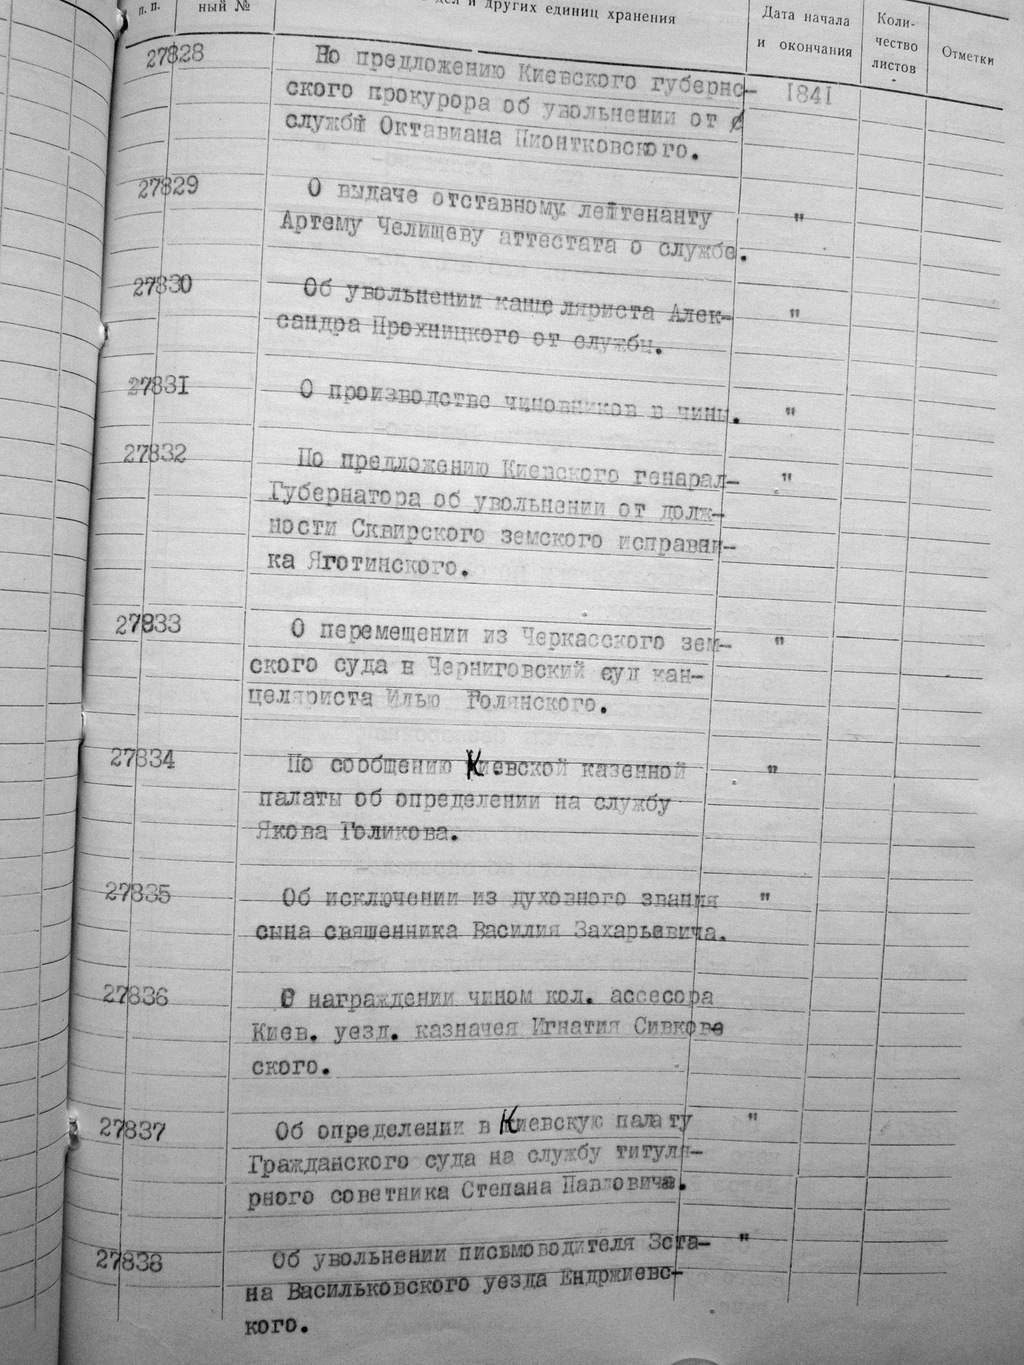 п. п.
ный №
дел и других единиц хранения
Дата начала
и окончания
Коли-
чество
листов
Отметки
27828
По предложению Киевского губернс-
1841
ского прокурора об увольнении от
службы Октавиана Пионтковского.
27829
О выдаче отставному лейтенанту
"
Артему Челищеву аттестата о службе.
27830
Об увольнении канцеляриста Алек-
"
сандра Прохницкого от службы.
27831
О производстве чиновников в чины.
"
27832
По предложению Киевского генерал-
"
Губернатора об увольнении от долж-
ности Сквирского земского исправни-
ка Яготинского.
27833
О перемещении из Черкасского зем-
"
ского суда в Черниговский суд кан-
целяриста Илью Голянского.
27834
По сообщению Киевской казенной
"
палаты об определении на службу
Якова Голикова.
27835
Об исключении из духовного звания
"
сына священника Василия Захарьевича.
27836
О награждении чином кол. ассесора
Киев. уезд. казначея Игнатия Сивкове
ского.
27837
Об определении в Киевскую палату
"
Гражданского суда на службу титуля-
рного советника Степана Павловича.
27838
Об увольнении письмоводителя Зста-
"
на Васильковского уезда Ендржиевс-
кого.